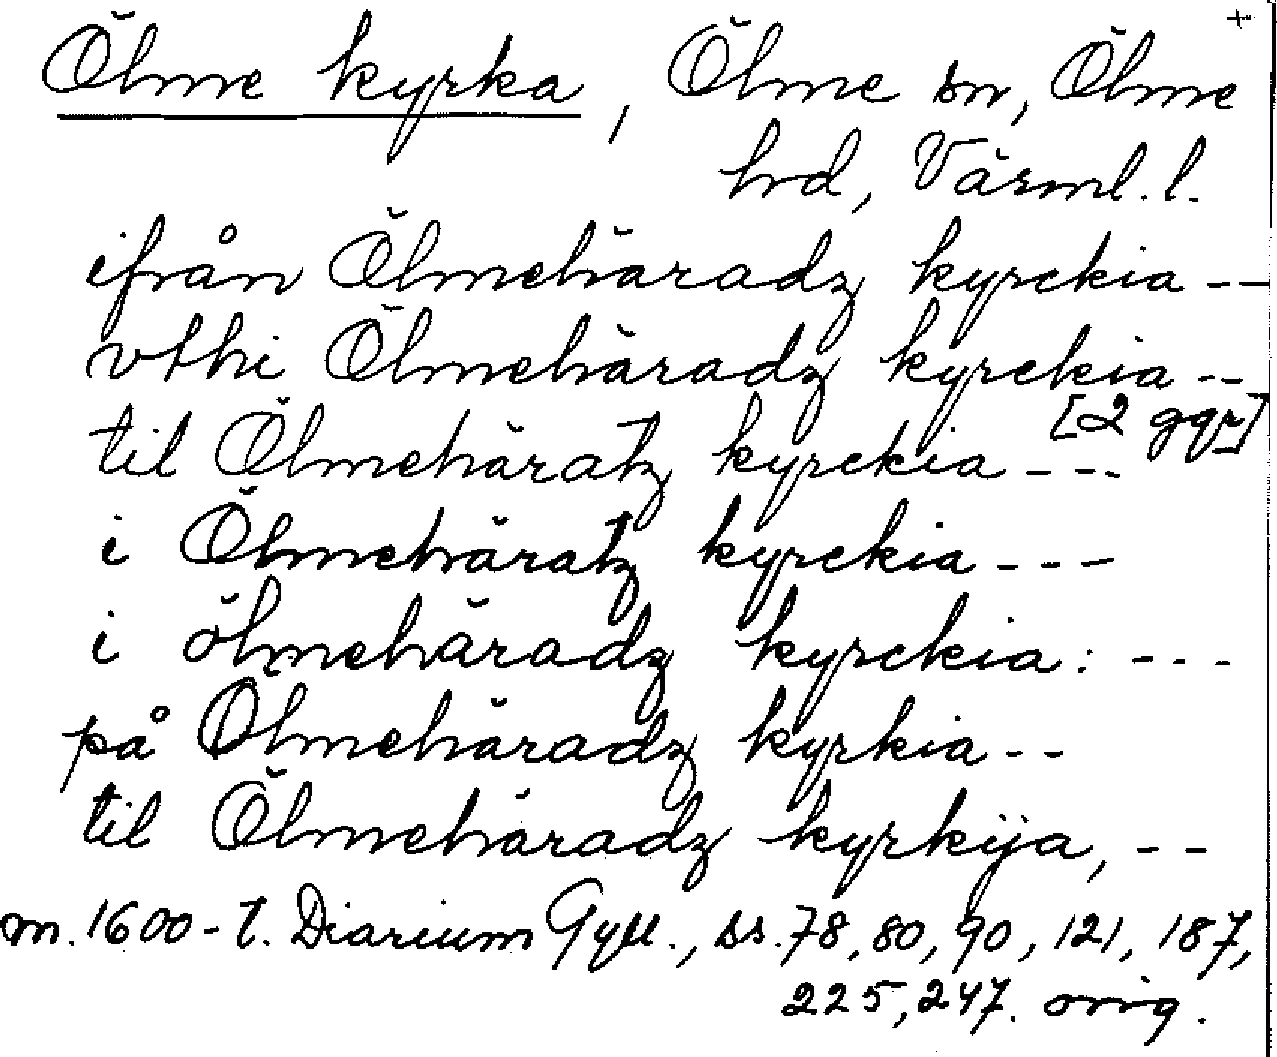 +
Ölme kyrka, Ölme sn, Ölme
hrd, Värml. l.
ifrån Ölmehäradz kyrckia --
vthi Ölmehäradz kyrckia --
[2 ggr]
til Ölmehäratz kyrckia ---
i Ölmehäratz kyrckia ---
i ölmehäradz kyrckia: ---
på Ölmehäradz kyrkia --
til Ölmehäradz kyrkija, --
m. 1600-t. Diarium Gyll., ss. 78, 80, 90, 121, 187,
225, 247. orig.